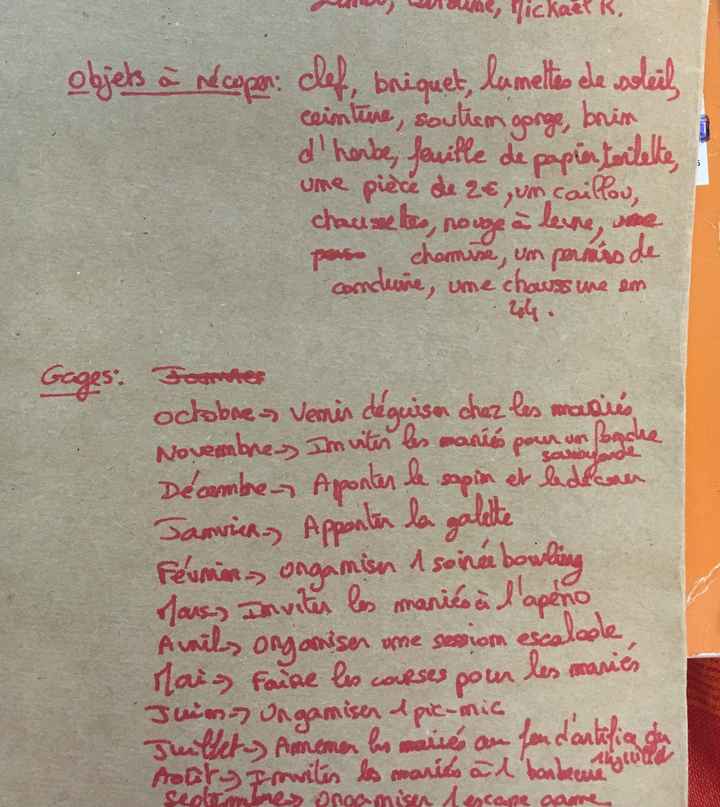 Mickaël R.
Objets à récuper: clef, briquet, lunettes de soleil,
ceinture, soutien gorge, brin
d'herbe, feuille de papier toilette,
une pièce de 2€, un caillou,
chaussettes, rouge à levre, une
chemise, un permis de
conduire, une chaussure en
44.
Gages:
Octobre → Venir déguiser chez les mariés
Novembre → Inviter les mariés pour un
savoyarde
Décembre → Apporter le sapin et le décorer
Janvier → Apporter la galette
Février → Organiser 1 soirée bowling
Mars → Inviter les mariés à l'apéro
Avril → Organiser une session escalade
Mai → Faire les courses pour les mariés
Juin → Organiser 1 pic-nic
Juillet → Amener les mariés au feu d'artifice du
14 juillet
Août → Inviter les mariés à 1 barbecue
Septembre → Organiser 1 escape game